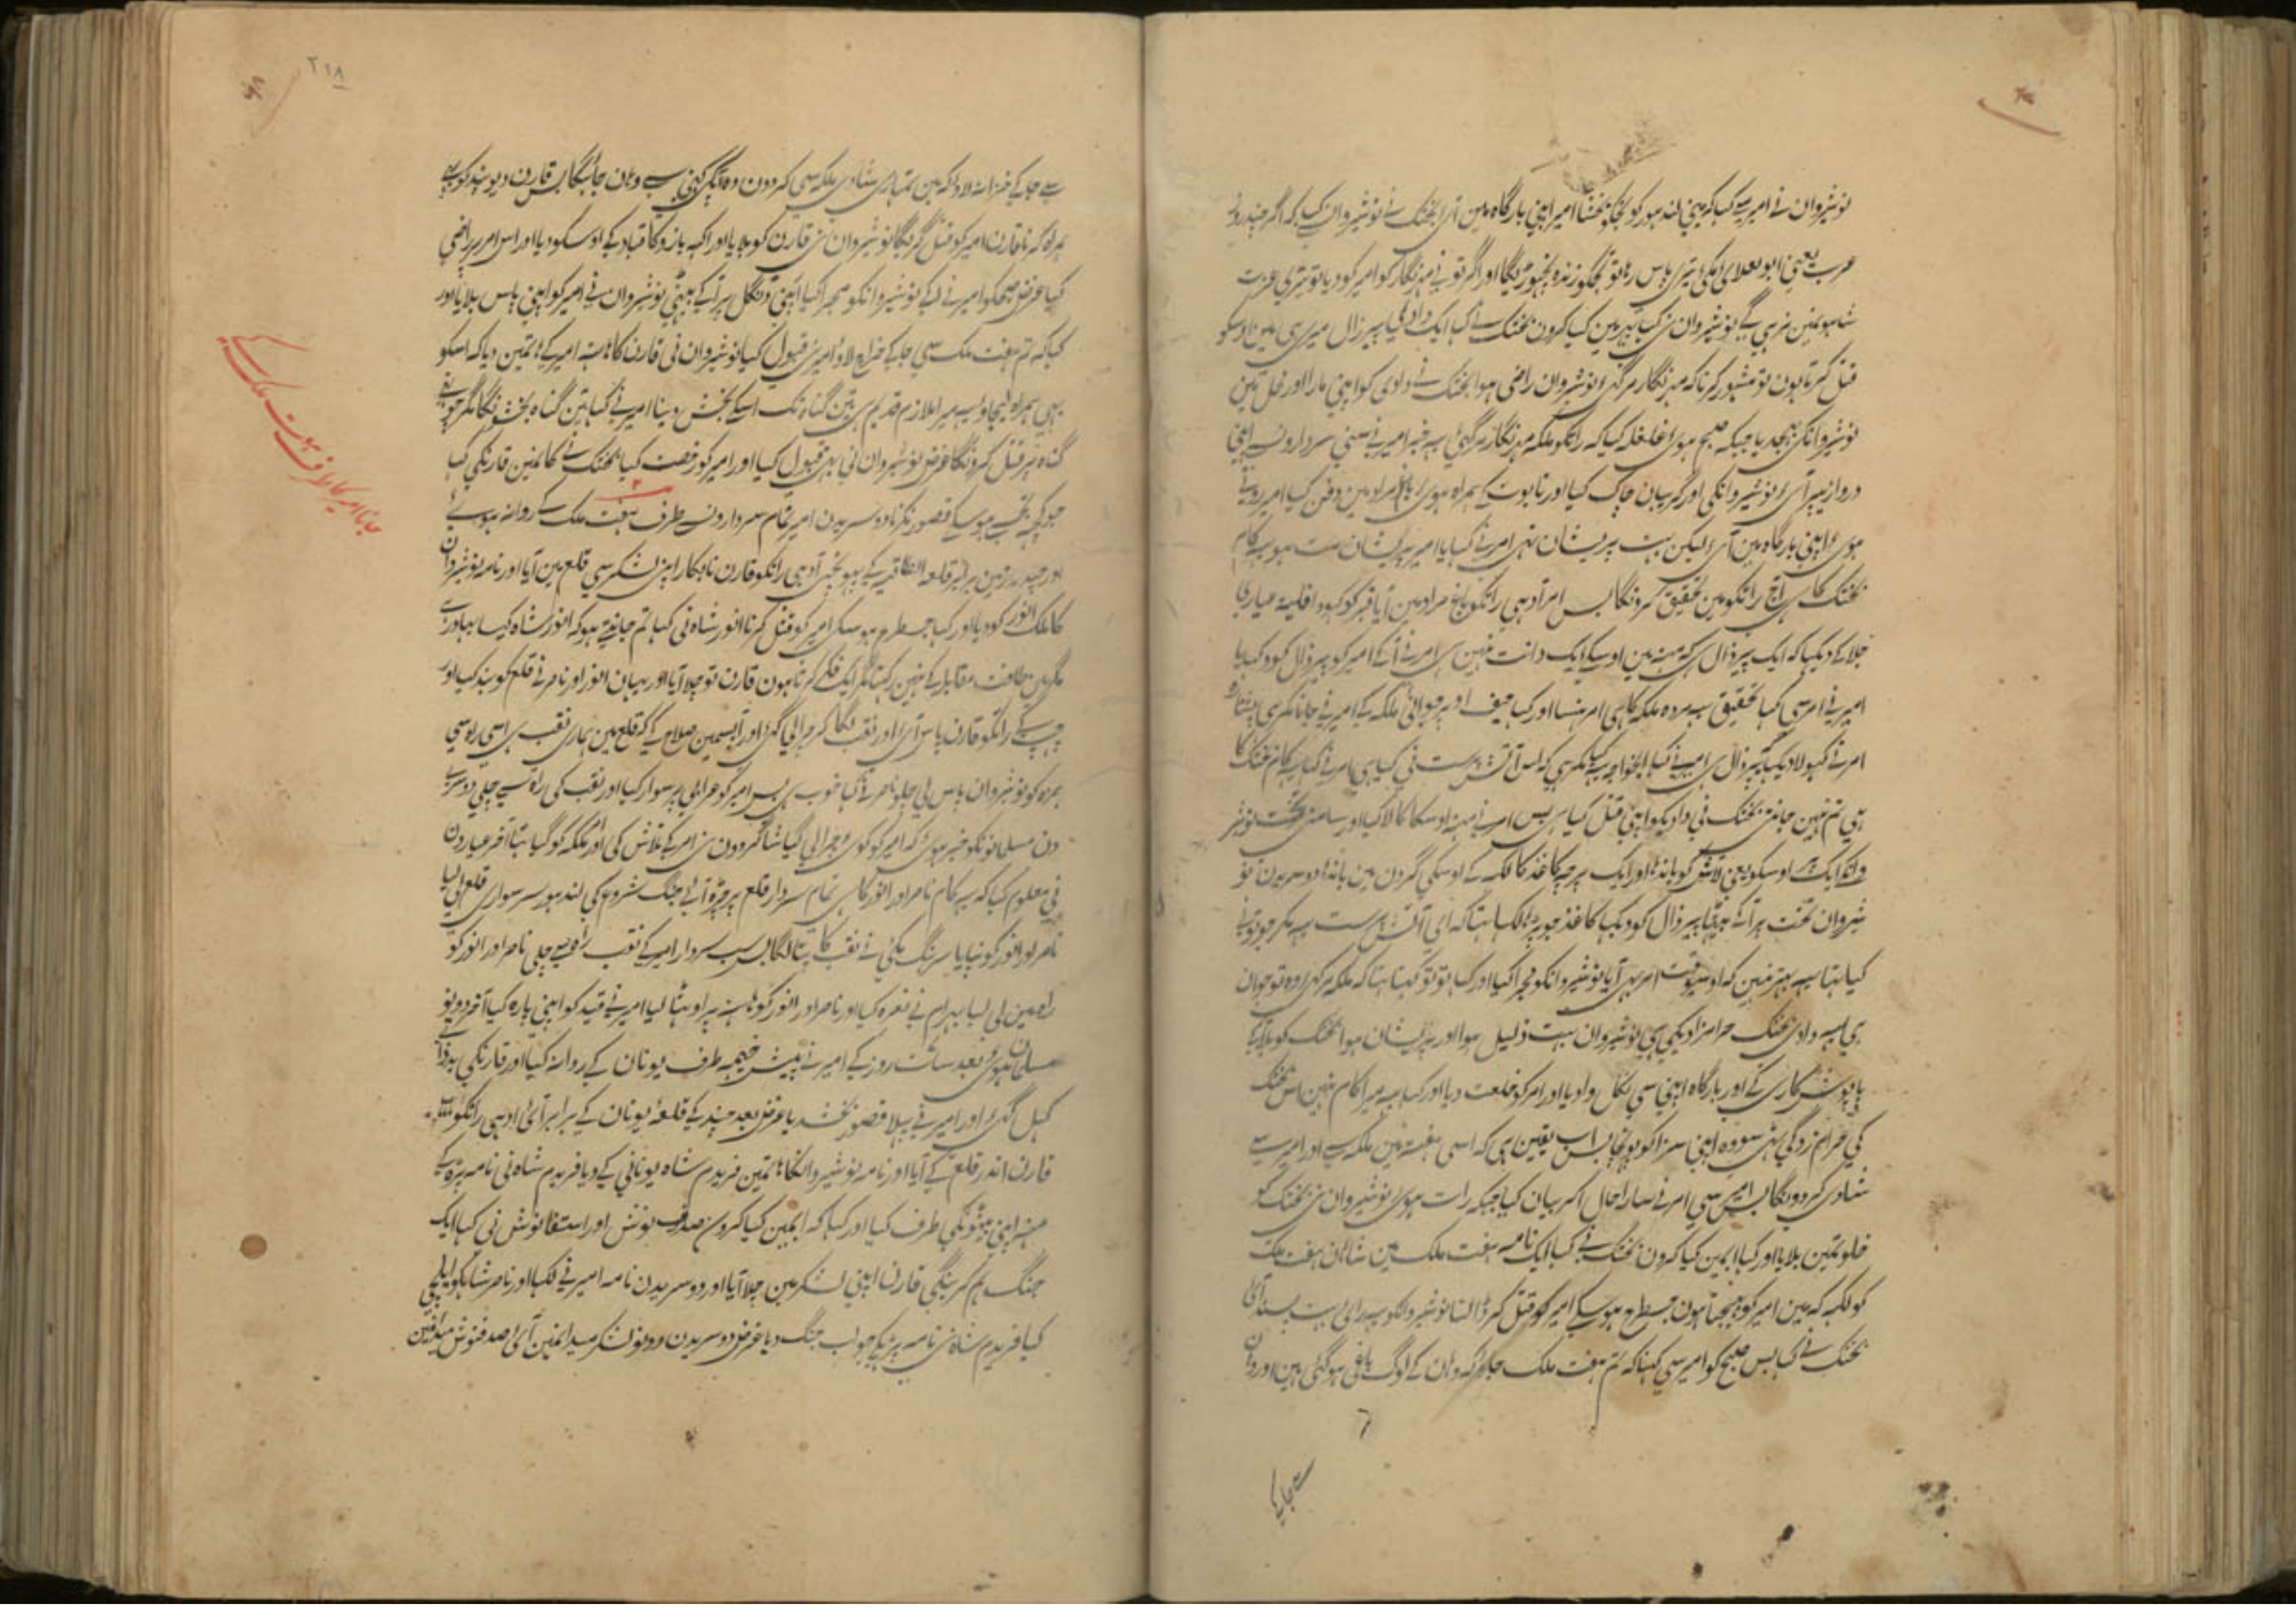 نوشیروان نے امیر سے کہا کہ مینی لندہور کو تجکو بخشا امیر اپنی بارگاہ مین آئی بختک نے نوشیروان سے کہا کہ اگر چند روز
عرب یعنی ابو بعلای مکی تیری پاس رہا تو تجکو زندہ نچھوڑیگا اور اگر تونے مہرنگار کو امیر کو دیا تو تیری عزت
شاہونمین نرہیگے نوشیروان نی کہا پہر مین کیا کرون بختک نے کہا ایک دادی پیر زال میری ہی مین اوسکو
قتل کرتا ہون تو مشہور کر نا کہ مہرنگار مرگئی نوشیروان راضی ہوا بختک نے دادی کو اپنی مارا اور محل مین
نوشیروانکی بہیجدیا جبکہ صبح ہوی غلغلہ کیا کہ راتکو ملکہ مہرنگار مرگئی یہ خبر امیر نے سنی سردارونسے اپنی
دروازہ پر آئی نوشیروانکی اور گریبان چاک کیا اور تابوت کے ہمراہ ہوی باغ مراد مین دفن کیا امیر روتے
ہوی اپنی بارگاہ مین آئی لیکن بہت پریشان تہی امر نے کہا یا امیر پریشان مت ہو یہ کام
بختک کا ہی آج راتکو مین تحقیق کرونگا پس امر آدہی راتکو باغ مراد مین آیا قبر کو کہودا فلیتہ عیاری
جلا کے دیکہا کہ ایک پیر زال ہی کہ منہ مین اوسکے ایک دانت نہین ہی امر نے آکے امیر کو پیر زال کہود کہا یا
امیر نے امر سی کہا تحقیق یہ مردہ ملکہ کا ہی امر ہنسا اور کہا حیف اوپر جوانی ملکہ کے امیر نے جانا مکر ہی پشتارہ
امر نے کہولا دیکہا پیر زال ہی امیر نے کہا ایخواجہ یہ کیا مکر ہی کہ اس آتش پرست نی کیا ہی امر نے کہا یہ کام بختک کا
ہی تم نہین جانتی بختک نی دادیکو اپنی قتل کیا ہی پس امر نے منہ اوسکا کالا کیا اور سامنی تخت نوشیر
وانکے ایک اوسکو یعنی لاش کو باندہا اور ایک پرچہ کاغذ کا لکہہ کے اوسکی گردن مین باندہا دوسریدن نو
شیروان تخت پر آکے بیٹہا پیر زال کو دیکہا کاغذ جو پڑہا لکہا تہا کہ ای آتش پرست یہ مکر جو تونے
کیا تہا یہ بہتر نہین کہ اوسیوقت امر بہی آیا نوشیروانکو مجرا کیا اور کہا تو تو کہتا تہا کہ ملکہ مرگئی وہ تو جوان
ہی یہ دادی بختک حرامزادیکی ہی نوشیروان بہت ذلیل ہوا اور پریشان ہوا بختک کو بلا کے
پاپوش کاری کے اور بارگاہ اپنی سی نکلوا دیا اور امر کو خلعت دیا اور کہا یہ میرا کام نہین اس بختک
کی حرامزدگی تہی سو وہ اپنی سزا کو پہونچا پس اب یقین ہی کہ اسی ہفتہ مین ملکہ سے اور امیر سے
شادی کردونگا پس امیر سی امر نے سارا حال آکر بیان کیا جبکہ رات ہوی نوشیروان نی بختک کو
خلوتمین بلایا اور کہا ایمین کیا کرون بختک نے کہا ایک نامہ ہفت ملک مین شاہان ہفت ملک
کو لکہہ کہ مین امیر کو بہیجتا ہون جسطرح ہوسکے امیر کو قتل کر ڈالنا نوشیروانکو یہ رای بہت پسند آئی
بختک نے کہا پس صبح کو امیر سی کہنا کہ تم ہفت ملک جاؤ کہ وہان کے لوگ باغی ہوگئی ہین اور وہان
سے جا کے
٢١٨
سے جا کے خزانہ لاؤ کہ مین تمہاری شادی ملکہ سی کردون وہ آپکی کہنی سے وہان جائیگا پس قارن دیوبند کو بہی
ہمراہ کرنا قارن امیر کو قتل کریگا نوشیروان نی قارن کو بلایا اور اکہہ بازو کا قباد کے اوسکو دیا اور اس امر پر راضی
کیا غرض صبحکو امیر نے آکے نوشیروانکو مجرا کیا اپنی دنگل پر آکے بیٹہی نوشیروان نے امیر کو اپنی پاس بلایا اور
کہا کہ تم ہفت ملک سی جا کے خراج لاؤ امیر نی قبول کیا نوشیروان نی قارن کا ہاتہہ امیر کے ہاتہمین دیا کہ اسکو
بہی ہمراہ لیجاؤ یہ میرا ملازم قدیم ہی تین گناہ تک اسکے بخش دینا امیر نے کہا تین گناہ بخشونگا مگر چوتہے
گناہ پر قتل کرونگا غرض نوشیروان نی بہی قبول کیا اور امیر کو رخصت کیا بختک نے کانمین قارنکی کہا
جو کچہہ تجہسے ہوسکے قصور نکرنا دوسریدن امیر تمام سردارونسے طرف ہفت ملک کے روانہ ہوئے
اور چند روزمین برابر قلعہ انطاقیہ کے پہونچی آدہی راتکو قارن نابکار اپنی لشکر سی قلع مین آیا اور نامہ نوشیروان
کا ملک انور کو دیا اور کہا جسطرح ہوسکی امیر کو قتل کرنا انور شاہ نی کہا تم جانتے ہو کہ انور شاہ کیسا بہادر ہے
مگر مین طاقت مقابلہ کے نہین رکہتا مگر ایک فکر کرتا ہون قارن تو چلا آیا اور یہان انور اور ناصر نے قلع کو بند کیا اور
چہپ کے راتکو قارن پاس آئی اور نقب لگا کر چرا لیگئی اور آپسمین صلاح کی کہ قلع مین ہماری نقب ہی اسی راہ سی
حمزہ کو نوشیروان پاس لی چلو ناصر نے کہا خوب ہی پس امیر کو عرابی پر سوار کیا اور نقب کی راہ سے چلی دوسرے
دن مسلمانونکو خبر ہوئی کہ امیر کو کوئی چرا لی گیا شاگردون نی امر کے تلاش کی امر مکہ کو گیا تہا آخر عیارون
نی معلوم کیا کہ یہ کام ناصر اور انور کا ہی تمام سردار قلع پر چڑہ آئے جنگ شروع کی لندہور سر سواری قلع لی لیا
ناصر اور انور کو نپایا سرہنگ مکی نے نقب کا پتا لگایا پس سب سردار امیر کے نقب راہ سے چلی ناصر اور انور کو
راہ مین لی لیا بہرام نے نعرہ کیا اور ناصر اور انور کو ہاتہہ پر اوٹہا لیا امیر نے قید کو اپنی پارہ کیا آخر دونو
مسلمان ہوئی بعد سات روز کے امیر نے پیش خیمہ طرف یونان کے روانہ کیا اور قارنکی بدذاتی
کہل گئی اور امیر نے پہلا قصور بخشدیا غرض بعد چند کے قلعہ یونان کے برابر آئی آدہی راتکو
قارن اندر قلع کے آیا اور نامہ نوشیروانکا ہاتہمین فریدم شاہ یونانی کے دیا فریدم شاہ نی نامہ پڑہ کے
منہ اپنی بیٹونکی طرف کیا اور کہا کہ ایمین کیا کرون صدف نوش اور استفانوش نی کہا ایک
جنگ ہم کرینگی قارن اپنی لشکر مین چلا آیا اور دوسریدن نامہ امیر نے لکہا اور ناصر شاہکو ایلچی
کیا فریدم شاہ نی نامہ پڑہکی جواب جنگ دیا غرض دوسریدن دونو لشکر میدانمین آئی صدفنوش میدانمین
جانا امیر کا طرف ہفت ملک کے